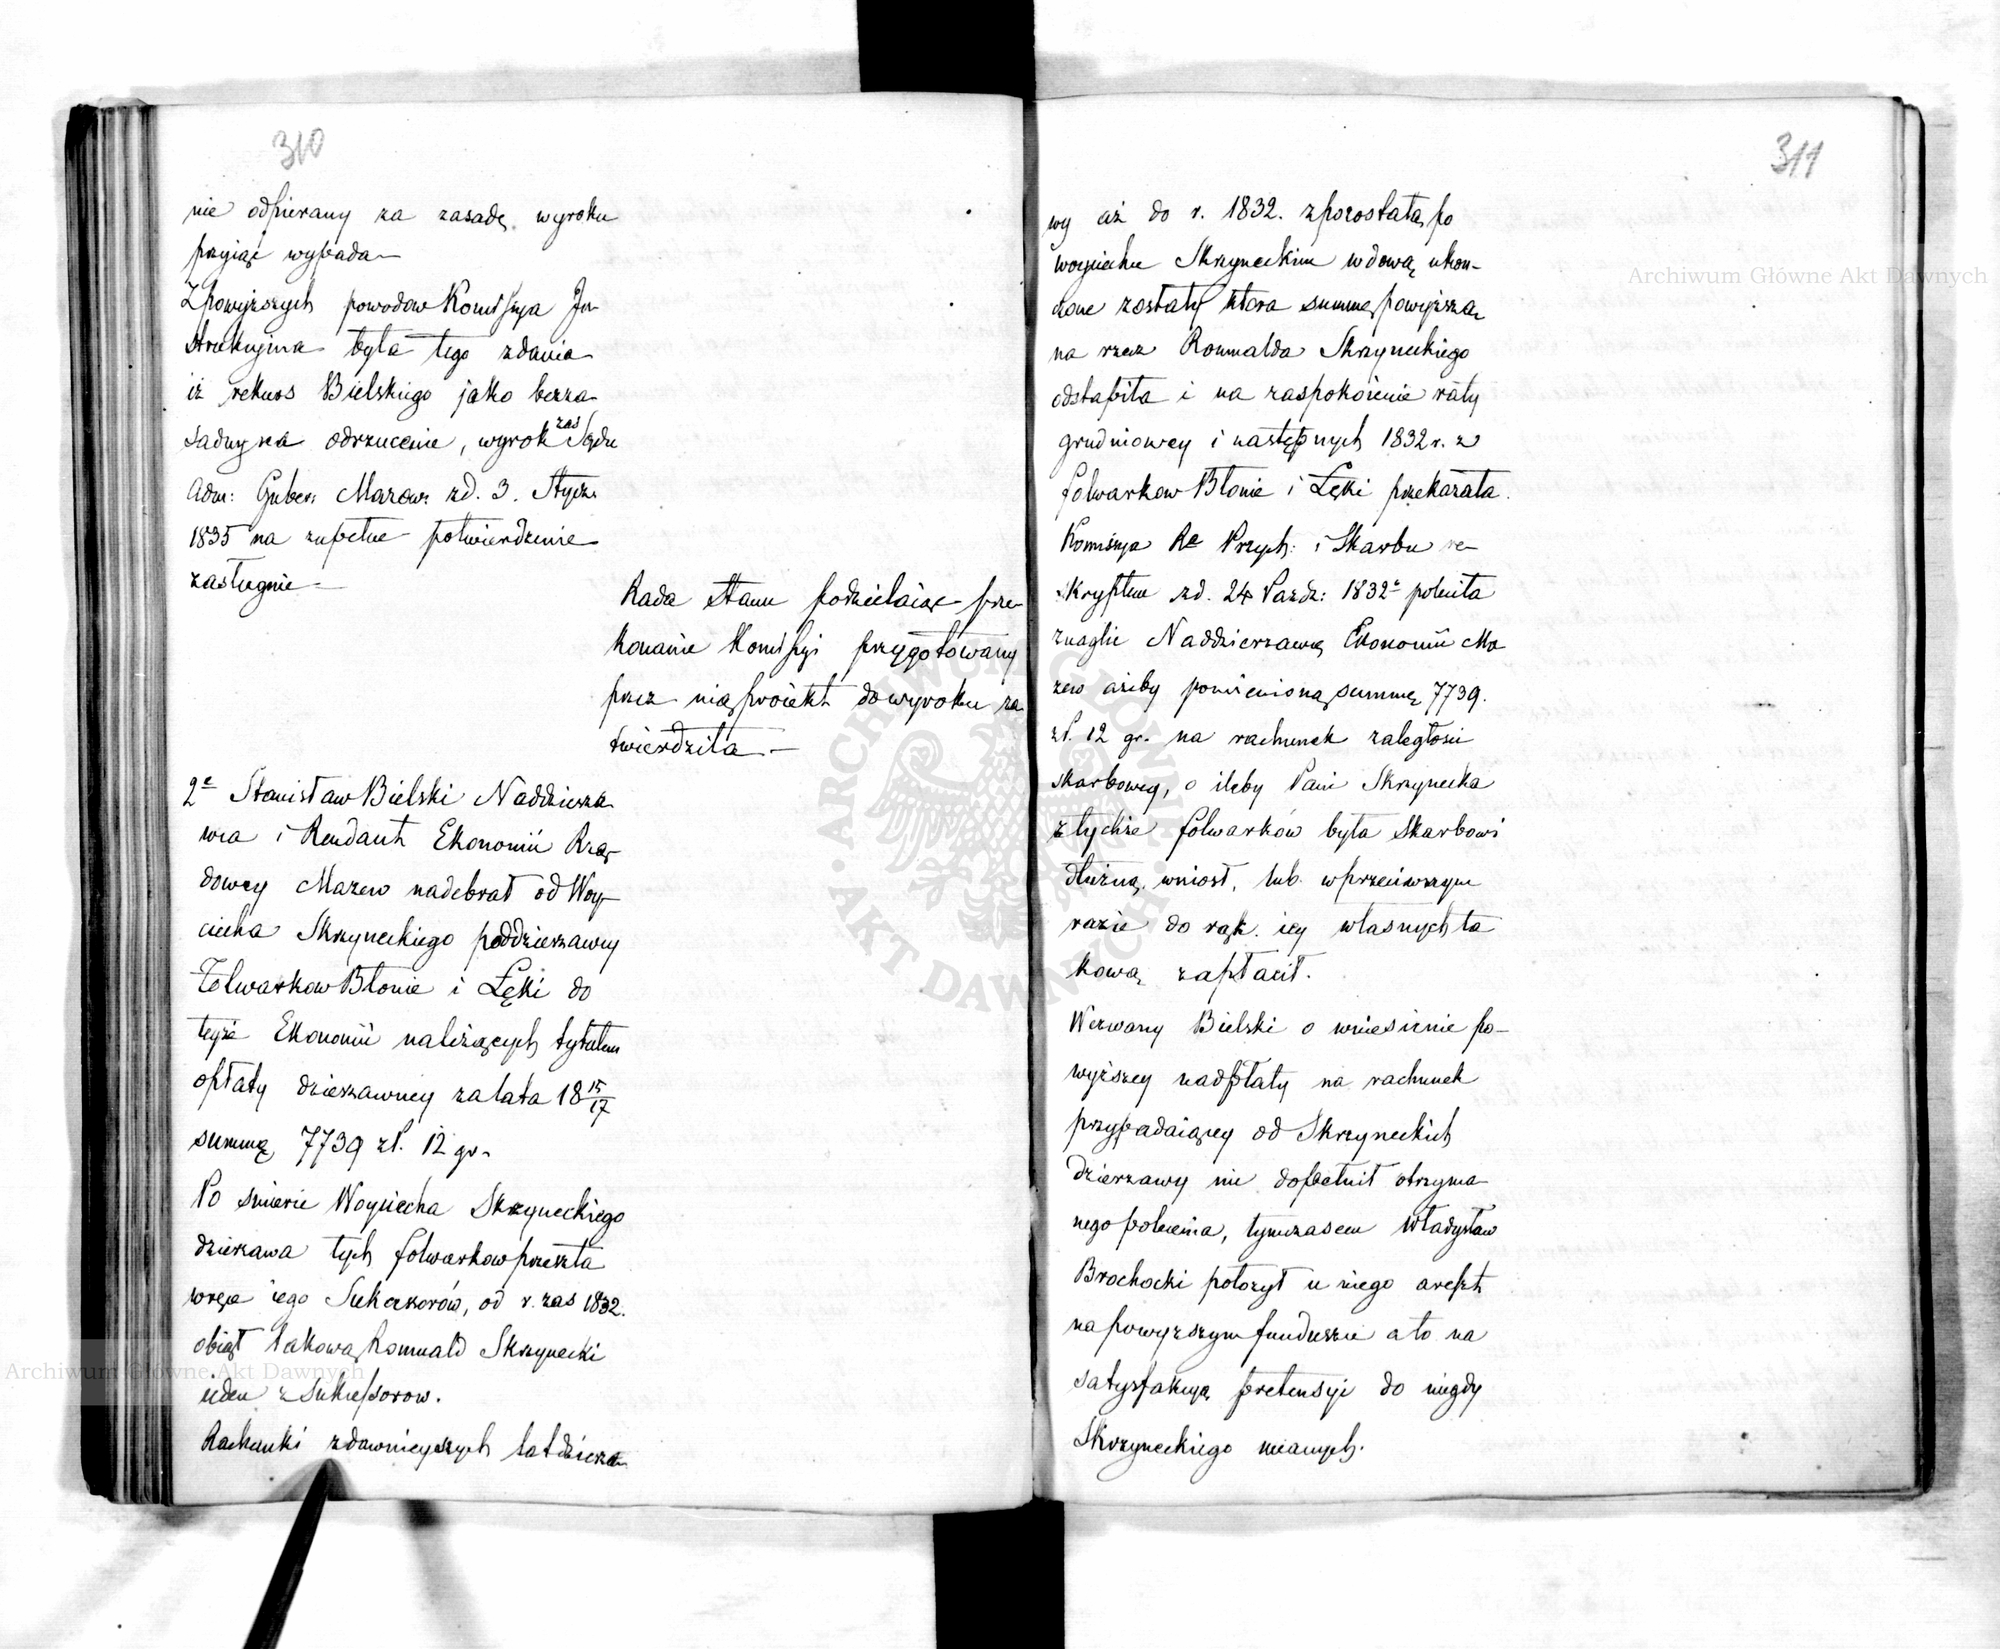 310
nie odpierany za zasadę wyroku
przyiąć wypada—
Z powyższych powodow Kommissya In-
strukcyina była tego zdania
iż rekurs Bielskiego jako bezza-
sadny na odrzucenie, wyrok zas Sądu
Adm: Guber: Mazow: z d. 3. Stycz:
1835 na zupełne potwierdzenie
zasługuie—
Rada Stanu podzielaiąc prze-
konanie Kommissyi przygotowany
przez nią proiekt do wyroku za-
twierdziła.—
2e Stanisław Bielski Naddzierża-
wca i Rendant Ekonomii Rzą-
dowey Mazew nadebrał od Woy-
ciecha Skrzyneckiego poddzierzawcy
Folwarkow Błonie i Łęki do
teyże Ekonomii należących tytułem
opłaty dzierzawney za lata 18 15/17
summę 7739 zł. 12 gr.
Po śmierci Woyciecha Skrzyneckiego
dzierzawa tych folwarkow przeszła
w ręce iego Sukcessorów, od r. zas 1832.
obiął takową Romuald Skrzynecki
ieden z Sukcessorow.
Rachunki z dawnieyszych lat dzierża-
311
wy aż do r. 1832. z pozostałą po
Woyciechu Skrzyneckim wdową ukoń-
czone zostały która summę powyższą
na rzecz Romualda Skrzyneckiego
odstąpiła i na zaspokoienie raty
grudniowey i następnych 1832 r. z
folwarkow Błonie i Łęki przekazała.
Komissya Re Przych: i Skarbu re-
skryptem z d. 24 Pazdz: 1832 r poleciła
znaglic Naddzierzawcę Ekonomii Ma-
zew ażeby pomienioną summę 7739.
zł. 12 gr. na rachunek zaległości
skarbowey, o ileby Pani Skrzynecka
z tychże folwarków była Skarbowi
dłużną, wniosł, lub w przeciwnym
razie do rąk iey własnych ta-
kową zapłacił.
Wezwany Bielski o wniesienie po-
wyższey nadpłaty na rachunek
przypadaiącey od Skrzyneckich
dzierzawy nie dopełnił otrzyma-
nego polecenia, tymczasem Władysław
Brochocki położył u niego areszt
na powyższym funduszu a to na
satysfakcyą pretensyi do niegdy
Skrzyneckiego mianych.
Archiwum Główne Akt Dawnych
Archiwum Główne Akt Dawnych
ARCHIWUM GŁÓWNE AKT DAWNYCH